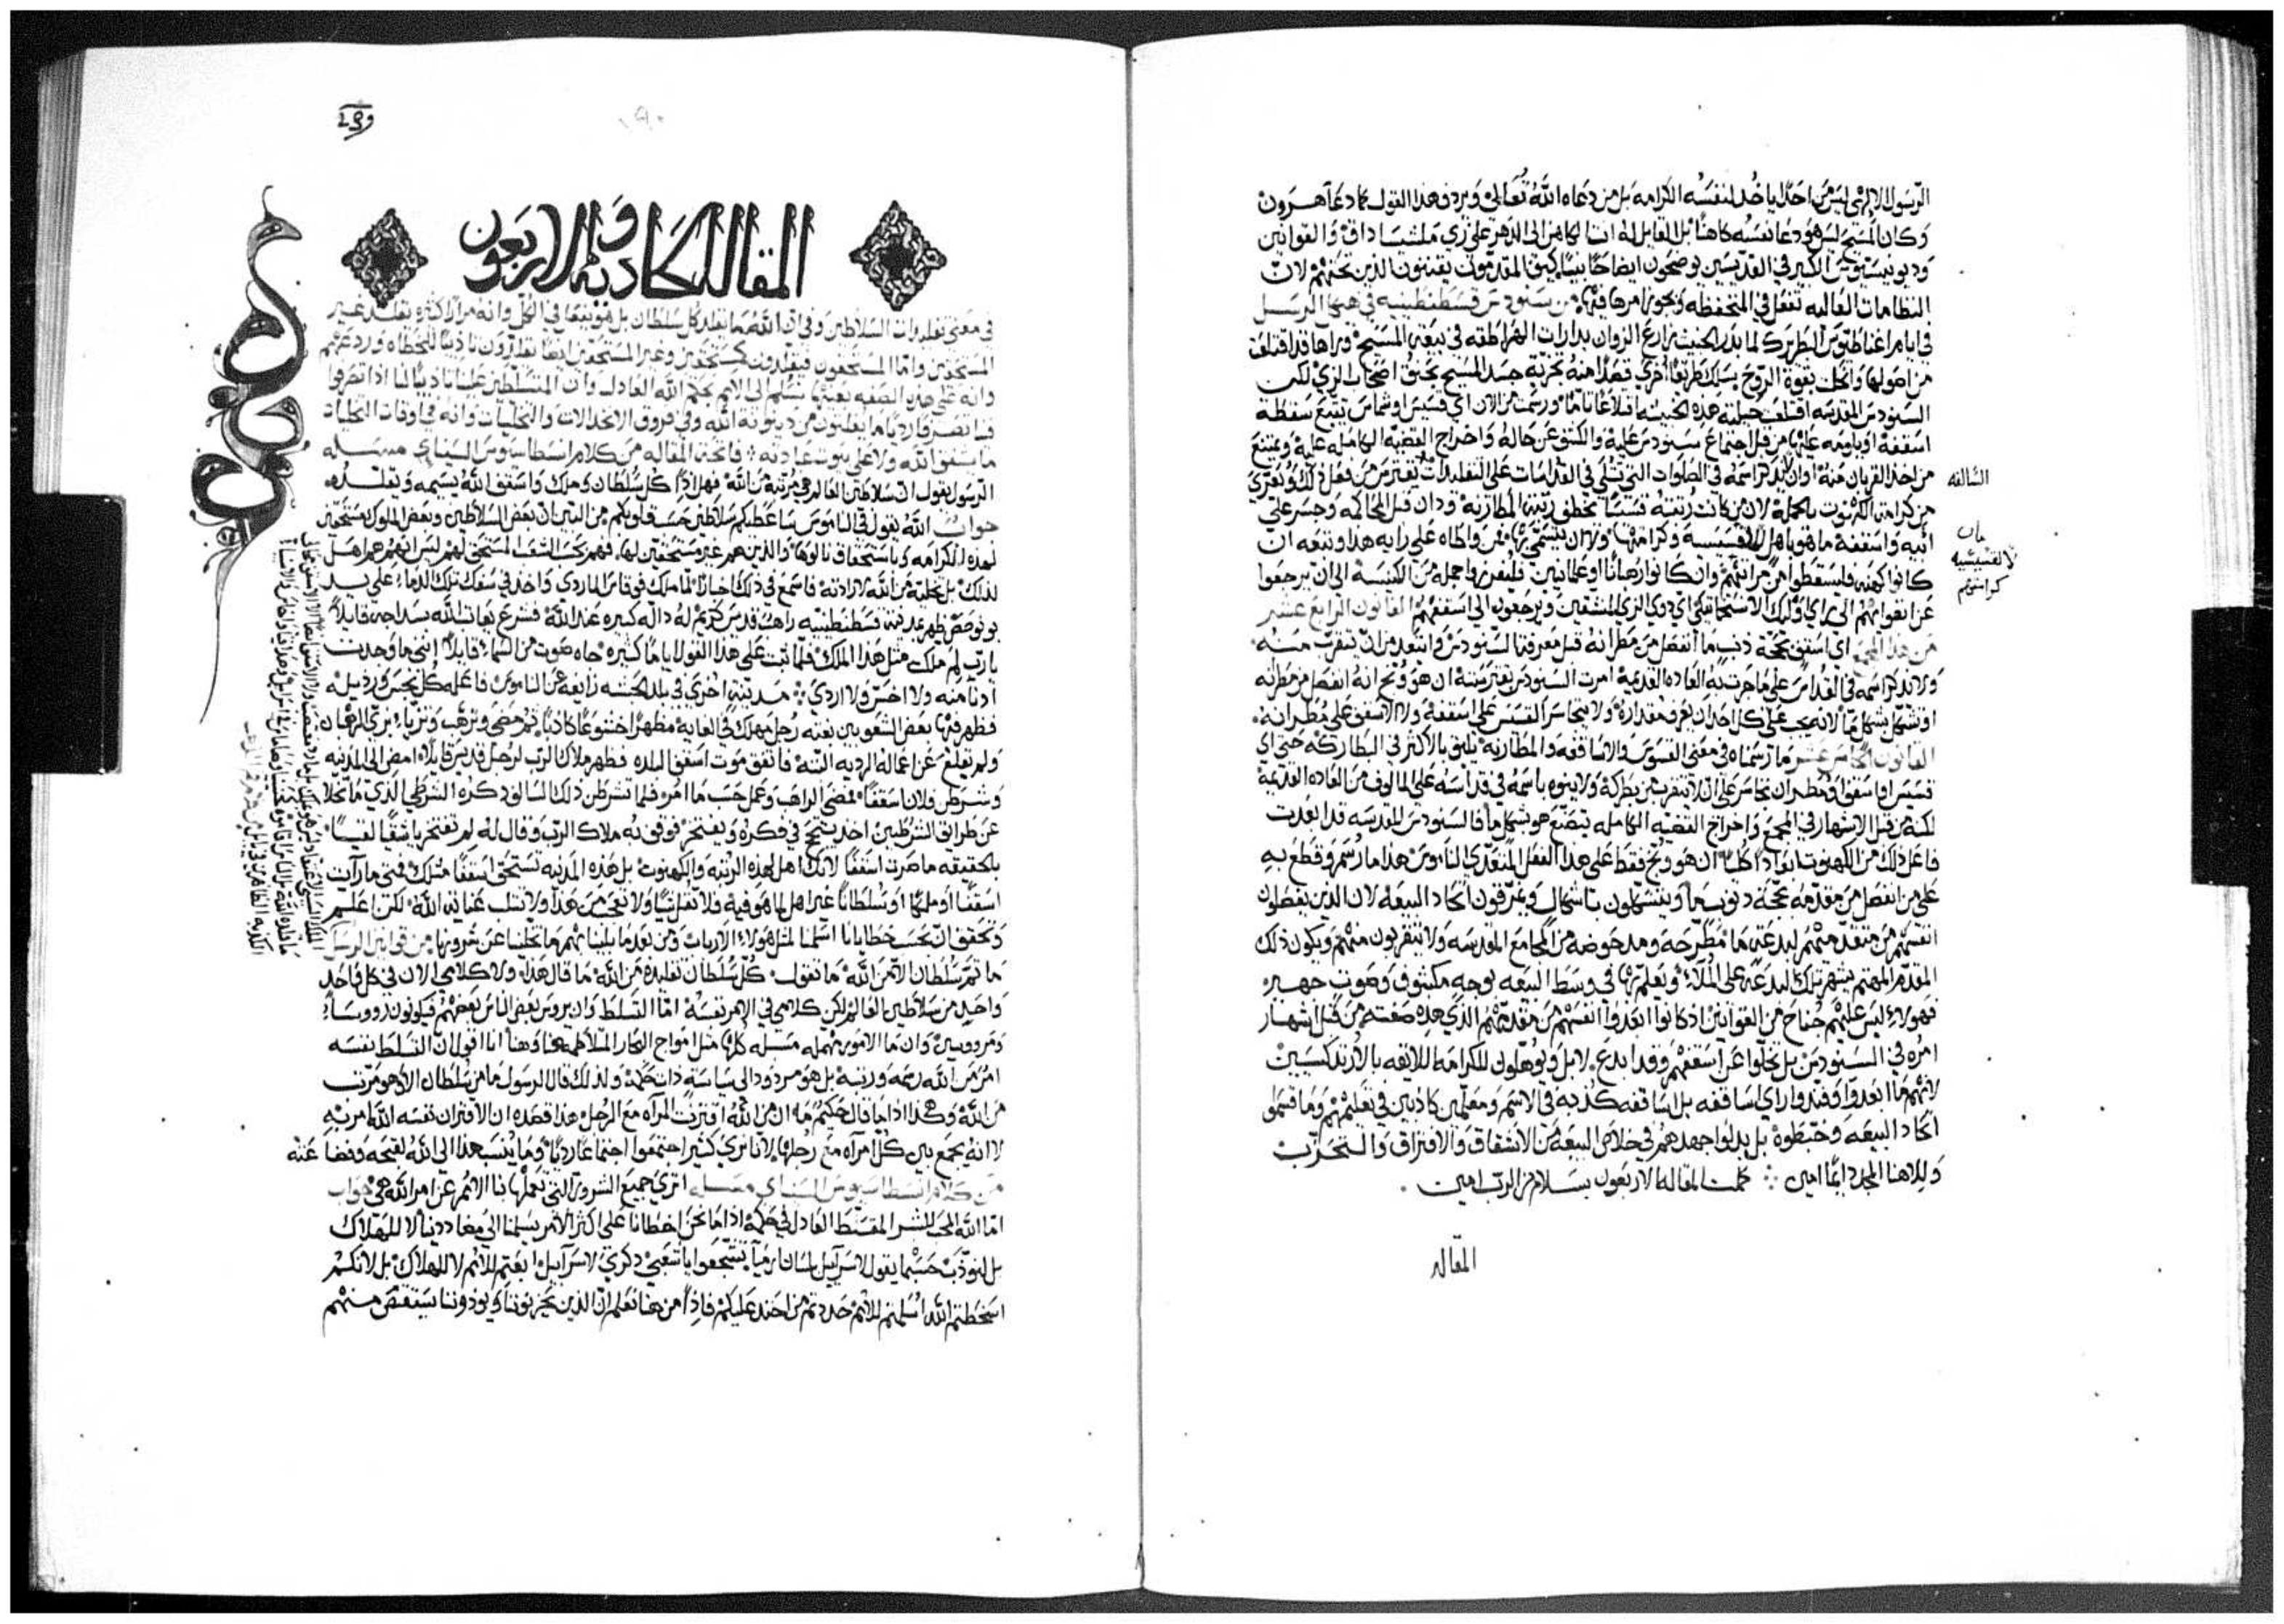 الرسول الالهي ليس احدًا ياخذ لنفسه الكرامه بل من دعاه الله تعالى ويردف هذا القول كما دعا هرون
وكان المسيح ليس هو دعا نفسه كاهنًا بل القايل له انت الكاهن الى الدهر على زي ملشيساداق والقوانين
وديونيسيوس الكبير في القديسين يوضحون ايضاحًا بينًا كيف المقدمون يقتنون الذين تحتهم لان
النظامات العاليه تفعل في المنخفظه من سنودس قسطنطينيه في هجا الرسل
في ايام اغناطيوس البطريرك لما بذر الخبيث زارع الزوان بدارات الهراطقه في بيعة المسيح وراها قد اقتلعت
من اصولها وانحلت بقوة الروح يسلك طريقًا اخرى قصدًا منه تجزية جسد المسيح بجنون اصحاب الزي لكن
السنودس المقدسه اقتلعت حيلته هذه الخبيثه اقتلاعًا تامًا ورسمت من الان اي قسيس او شماس تتبع سقطة
اسقفه من قبل اجتماع سنودس عليه والكشف عن حاله واخراج القضيه الكامله عليه ويمتنع
من اخذ القربان منه او ان لا يذكر اسمه في الصلوات التي تتلى في القداسات على التقليدات يفترس من فعل ذلك ويعرى
من كرامة الكهنوت بالجملة لان من كانت رتبته قسيسًا يخطف رتبة المطارنه ودان قبل المحاكمه وجسر على
ابيه واسقفه ما هو باهل للقسيسيه وكرامتها ولا ان يتسمى بها فمن واطاه على رايه هذا وتبعه ان
كانوا كهنه فليسقطوا من مراتبهم وان كانوا رهبانًا او علمانيين فليفرزوا جمله من الكنيسه الى ان يرجعوا
عن اتفواهم الى راي اوليك الاشتحاقيين اي ذوي الزي المنشقين ويرجعون الى اسقفهم القانون الرابع عشر
من هذا المجمع اي اسقف بحجة ذنب ما انفصل من مطرانه قبل معرفة السنودس وابتعد من ان يتقرب منه
ولا يذكر اسمه في القداس على ما جرت به العاده القديمه امرت السنودس بقترسته ان هو وبخ انه انفصل من مطرانه
او تشكل بشكل ما لانه يجب على كل احد ان يعرف مقداره ولا يتجاسر القسيس على اسقفه ولا الاسقف على مطرانه
القانون الخامس عشر ما رسمناه في معنى القسوس والاساقفه والمطارنه يليق بالاكثر في البطاركه حتى اي
قسيس او اسقف او مطران تجاسر على ان لا يتقرب من بطركه ولا ينوه باسمه في قداسه على المالوف من العاده القديمه
لكنه من قبل الاشهار في المجمع واخراج القضيه الكامله يتصنع هو شكل ما فالسنودس المقدسه قد ابعدت
فاعل ذلك من الكهنوت ابعادًا كليًا ان هو وبخ فقط على هذا الفعل المتعدي الناموس هذا ما رسم وقطع به
على من انفصل من مقدمه بحجة ذنوب ما ويتشكلون باشكال ويمزقون اتحاد البيعه لان الذين يفصلون
انفسهم من متقدمهم لبدعة ما مطرحه ومدحوضه من المجامع المقدسه ولا يتقربون منهم ويكون ذلك
المقدم المهتم يشهر تلك البدعه على الملاء ويعلم بها في وسط البيعه بوجه مكشوف وصوت جهير
فهولاء ليس عليهم جناح من القوانين اذ كانوا ابعدوا انفسهم من مقدمهم الذي هذه صفته من قبل اشهار
امره في السنودس بل تخلوا عن اسقفهم وقد ابدع لا بل ويوهلون للكرامه اللايقه بالارتدكسيين
لانهم ما ابعدوا وفندوا راي اساقفه بل اساقفه كذبه في الاسم ومعلمين كاذبين في تعليمهم وما قسموا
اتحاد البيعه وخبطوه بل بذلوا جهدهم في خلاص البيعه من الانشقاق والافتراق والتحزب
ولالاهنا المجد دايمًا امين ⁘ كملت المقاله الاربعون بسلام من الرب امين
السالفه
كراستهم
المقاله
المقاله الحاديه والاربعون
في معنى تقليدات السلاطين وفي ان الله ما يقلد كل سلطان بل هو يتبعها في الكل وانه مرارًا كثيره يقلد غير
المستحقين واما المستحقون فيقلدون كمستحقين وغير المستحقين ايضًا يقلدون تاديبًا للخطاه وردعهم
وانه على هذه الصفه بعينها نسلم الى الامم بحكم الله العادل وان المتسلطين علينا تاديبًا لنا اذا تصرفوا
فينا تصرفًا رديًا ما يفلتون من دينونة الله وفي فروق الانخذالات والتخليات وانه في اوقات التخليات
ما يشفق الله ولا على بيوت عبادته ⁘ فاتحة المقاله من كلام انسطاسيوس السيناي مسله
الرسول يقول ان سلاطين العالم هي مرتبه من الله فهل اذًا كل سلطان وملك واسقف الله يسيمه ويقلده
جواب الله يقول في الناموس ساعطيكم سلاطين حسب قلوبكم من البين ان بعض السلاطين وبعض الملوك بمستحقين
لهذه الكرامه وباستحقاق نالوها والذين هم غير مستحقين لها فهم بحسب الشعب المستحق لهم ليس انهم هم اهل
لذلك بل بتخلية من الله لا ارادته فاسمع في ذلك اخبارًا لما ملك فوقاس المارد واخذ في سفك تلك الدماء على يد
بونوصص ظهر بمدينة قسطنطينيه راهب قديس كريم له داله كبيره عند الله فشرع يعاتب الله بسذاجه قايلًا
يا رب لم ملكت مثل هذا الملك فلما ثبت على هذا القول ايامًا كثيره جاه صوت من السماء قايلًا انني ما وجدت
ادنا منه ولا اخس ولا اردي ⁘ مدينه اخرى في بلد الحبشه زايغه عن الناموس فاعله كل نجس ورذيله
فظهر فيها بعض الشعوبيين بغته رجل مهلك في الغايه مظهرًا خشوعًا كاذبًا ثم مضى وترهب وتزيا بزي الرهبان
ولم يقلع عن اعماله الرديه البته فاتفق موت اسقف البلده فظهر ملاك الرب لرجل قديس قايلًا امض الى المدينه
وشرطن فلان اسقفًا فمضى الراهب وعمل حسب ما امر فلما تشرطن ذلك السالف ذكره الشرطي الذي ما تخلا
عن طرايق الشرطيين اخذ يتبجح في فكره ويفتخر فوقف به ملاك الرب وقال له لم تفتخر يا شقيًا
بالحقيقه ما صرت اسقفًا لانك اهل لهذه الرتبه والكهنوت بل هذه المدينه تستحق اسقفًا مثلك فمتى ما رايت
اسقفًا او ملكًا او سلطانًا غير اهل لما هو فيه فلا تقل شيًا ولا تعجب من هذا ولا تثلب عناية الله لكن اعلم
وتحقق ان بحسب خطايانا اسلمنا لمثل هولاء الارباب ومن بعد ما بلينا بهم ما تخلينا عن شرورنا من قوانين الرسل
ما ثم سلطان الا من الله ما تقول كل سلطان تقليده من الله ما قال هذا ولا كلامي الان في كل واحد
واحد من سلاطين العالم لكن كلامي في الامر نفسه اما التسلط وان يروس بعض الناس بعضهم فيكونون روساء
ومرووسين وان ما الامور مهمله مسيله كلها مثل امواج البحار المتلاطمه هنا وهنا انا اقول ان التسلط نفسه
امر من الله رسمه ورتبه بل هو مردود الى سياسه ذات حكمه ولذلك قال الرسول ما من سلطان الا وهو مرتب
من الله وهكذا اذا ما قال حكيم ما ان من الله اقترنت المرآه مع الرجل هذا قصده ان الاقتران نفسه الله امر به
لا انه يجمع بين كل امرآه مع رجلها لانا نرى كثيرًا اجتمعوا اجتماعًا رديًا وما ينسب هذا الى الله لقبحه
من كلام انسطاسيوس السيناي مسله اترى جميع الشرور التي تعملها بنا الامم عن امر الله هي جواب
اما الله المحب للبشر المقسط العادل في حكمه اذا ما نحن اخطانا على اكثر الامر يسلمنا الى معاديينا لا للهلاك
بل لنودب حسبما يقول لاسراييل بلسان ارميا تشجعوا يا شعبي ذكري لاسراييل ابعتم للامم لا للهلاك بل لانكم
اسخطتم الله اسلمتم للامم فاذًا من هنا نعلم ان الذين يحزنوننا ويوذوننا سيقتص منهم